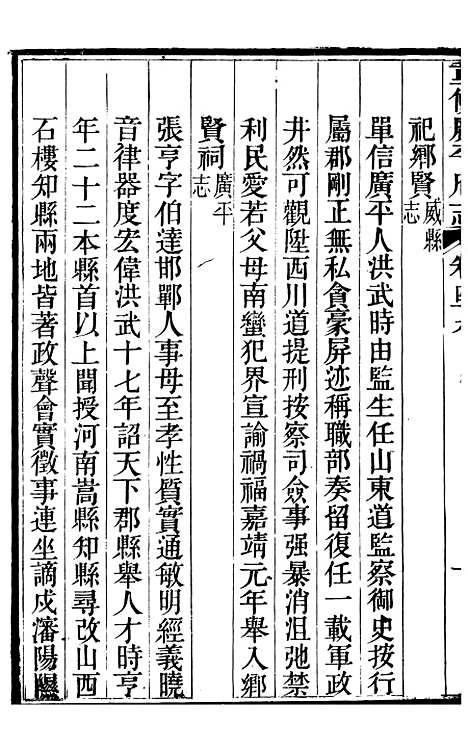 重修廣平府志 卷四十九
祀鄉賢威縣志
單信廣平人洪武時由監生任山東道監察御史按行
屬郡剛正無私貪豪屏迹稱職部奏留復任一載軍政
井然可觀陞西川道提刑按察司僉事强暴消沮弛禁
利民愛若父母南蠻犯界宣諭禍福嘉靖元年舉入鄉
賢祠廣平志
張亨字伯達邯鄲人事母至孝性質實通敏明經義曉
音律器度宏偉洪武十七年詔天下郡縣舉人才時亨
年二十二本縣首以上聞授河南嵩縣知縣尋改山西
石樓知縣兩地皆著政聲會實徵事連坐謫戍瀋陽